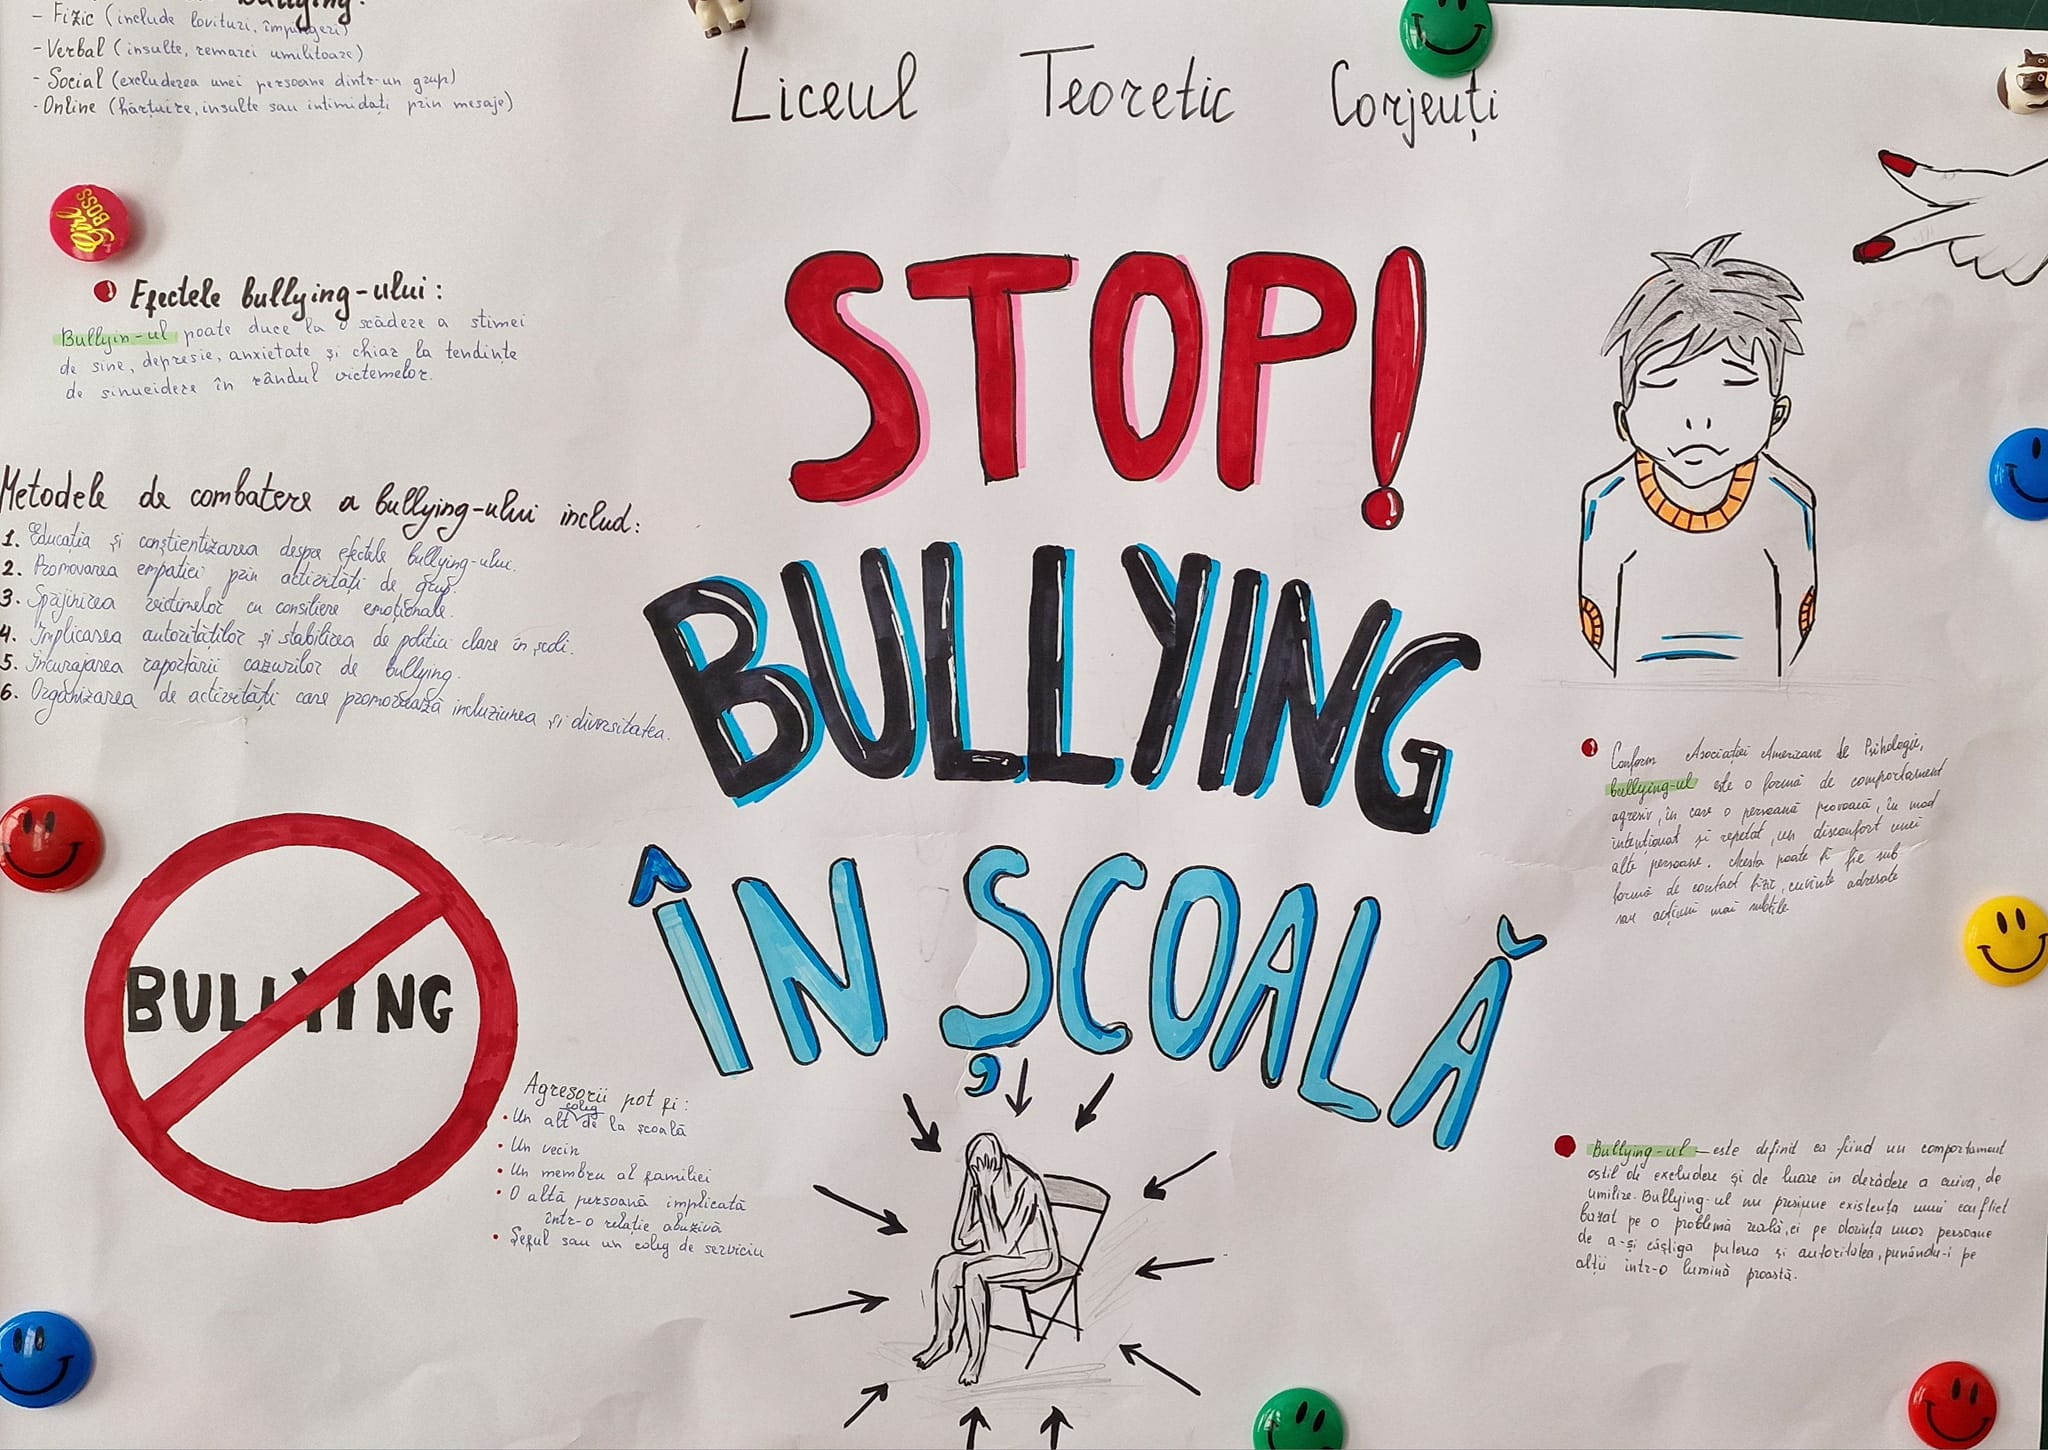 bullying:
- Fizic (include lovituri, împingeri)
- Verbal (insulte, remarci umilitoare)
- Social (excluderea unei persoane dintr-un grup)
- Online (hărțuire, insulte sau intimidați prin mesaje)
Liceul Teoretic Corjeuți
Girl BOSS
Efectele bullying-ului:
Bullyin-ul poate duce la o scădere a stimei
de sine, depresie, anxietate și chiar la tendințe
de sinucidere în rândul victemelor.
Metodele de combatere a bullying-ului includ:
1. Educația și conștientizarea despre efectele bullying-ului.
2. Promovarea empatiei prin activități de grup.
3. Spijinirea victimelor cu consiliere emoționale.
4. Implicarea autorităților și stabilirea de politici clare în școli.
5. Încurajarea raportării cazurilor de bullying.
6. Organizarea de activități care promovează incluziunea și diversitatea.
STOP!
BULLYING
ÎN ȘCOALĂ
BULLYING
Agresorii pot fi:
• Un alt coleg de la școală
• Un vecin
• Un membru al familiei
• O altă persoană implicată
într-o relație abuzivă
• Șeful sau un coleg de serviciu
Conform Asociației Americane de Psihologie,
bullying-ul este o formă de comportament
agresiv, în care o persoană provoacă, în mod
intenționat și repetat, un disconfort unei
alte persoane. Acesta poate fi fie sub
formă de contact fizic, cuvinte adresate
sau acțiuni mai subtile
Bullying-ul - este definit ca fiind un comportament
ostil de excludere și de luare in derâdere a cuiva, de
umilire. Bullying-ul nu presupune existența unui conflict
bazat pe o problemă reală, ci pe dorința unor persoane
de a-și câștiga puterea și autoritatea, punându-i pe
alții intr-o lumină proastă.